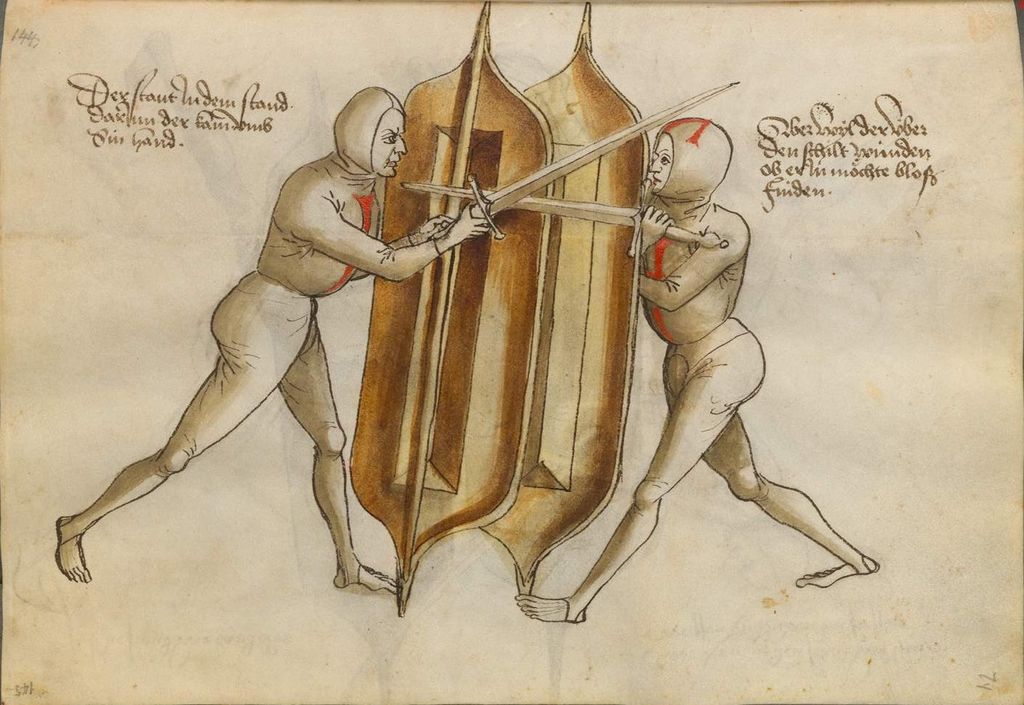 Der staut in dem stand
dar Inn der kam vmb
Sin hand.
Aber wyl der über
den schilt winnden
ob er in möchte bloß
finden.